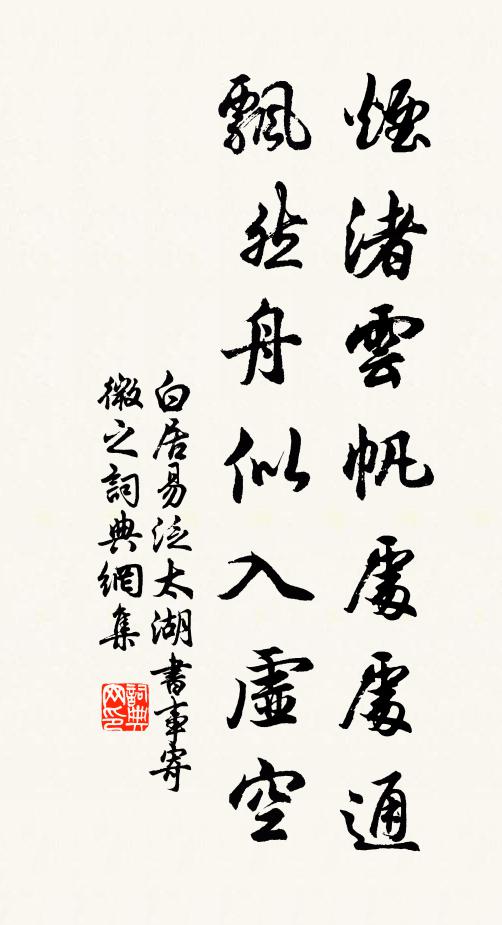 煙渚雲帆處處通
飄然舟似入虛空
白居易泛太湖書事寄
微之詞典網集
詞典
网印